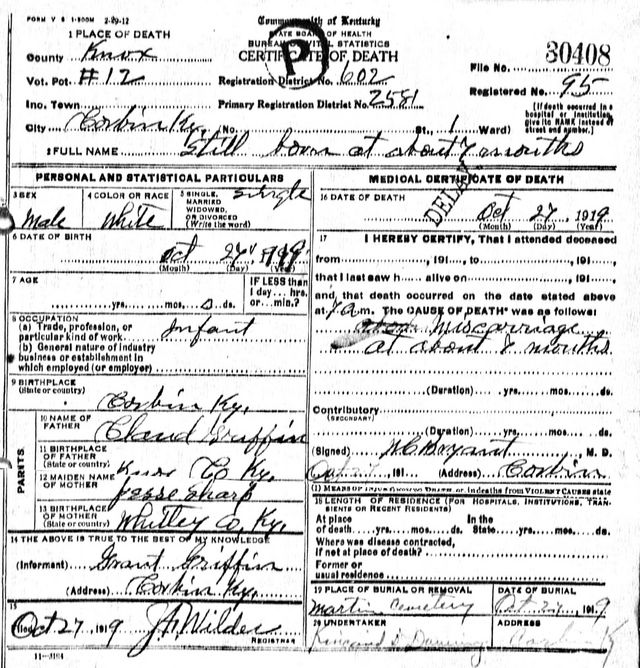 FORM V S 1-500M 2-29-12
Commonwealth of Kentucky
STATE BOARD OF HEALTH
BUREAU VITAL STATISTICS
CERTIFICATE OF DEATH
P
1 PLACE OF DEATH
County Knox
File No. 30408
Vot. Pct #12
Registration District No. 602
Registered No. 95
Inc. Town
Primary Registration District No. 2581
[If death occurred in a hospital or institution, give its NAME instead of street and number.]
City Corbin Ky. No. St., 1 Ward)
2 FULL NAME Still born at about 7 months
PERSONAL AND STATISTICAL PARTICULARS
3 SEX Male
4 COLOR OR RACE White
5 SINGLE, MARRIED WIDOWED, OR DIVORCED (Write the word) Single
6 DATE OF BIRTH
Oct 27 1919
(Month) (Day) (Year)
7 AGE
yrs. mos. 0 ds.
IF LESS than 1 day... hrs. or... min.?
8 OCCUPATION
(a) Trade, profession, or particular kind of work Infant
(b) General nature of industry business or establishment in which employed (or employer)
9 BIRTHPLACE (State or country) Corbin Ky.
PARENTS
10 NAME OF FATHER Claud Griffin
11 BIRTHPLACE OF FATHER (State or country) Knox Co Ky.
12 MAIDEN NAME OF MOTHER Jesse Sharp
13 BIRTHPLACE OF MOTHER (State or country) Whitley Co. Ky.
14 THE ABOVE IS TRUE TO THE BEST OF MY KNOWLEDGE
(Informant) Grant Griffin
(Address) Corbin Ky.
15
Filed Oct 27, 1919 Wilder
REGISTRAR
11-3184
MEDICAL CERTIFICATE OF DEATH
DELAY
16 DATE OF DEATH
Oct 27, 1919
(Month) (Day) (Year)
17 I HEREBY CERTIFY, That I attended deceased
from , 191 , to , 191 ,
that I last saw h alive on , 191 ,
and that death occurred on the date stated above
at 7 a m. The CAUSE OF DEATH* was as follows:
Miscarriage
at about 7 months
(Duration) yrs. mos. ds.
Contributory (SECONDARY)
(Duration) yrs. mos. ds.
(Signed) W C Bryant, M. D.
Oct 27, 191 (Address) Corbin
in deaths from VIOLENT CAUSES state
18 LENGTH OF RESIDENCE (FOR HOSPITALS, INSTITUTIONS, TRANSIENTS OR RECENT RESIDENTS)
At place of death yrs. mos. ds. In the State yrs. mos. ds.
Where was disease contracted, if not at place of death?
Former or usual residence
19 PLACE OF BURIAL OR REMOVAL Martin Cemetery
DATE OF BURIAL Oct 27, 1919
20 UNDERTAKER
ADDRESS